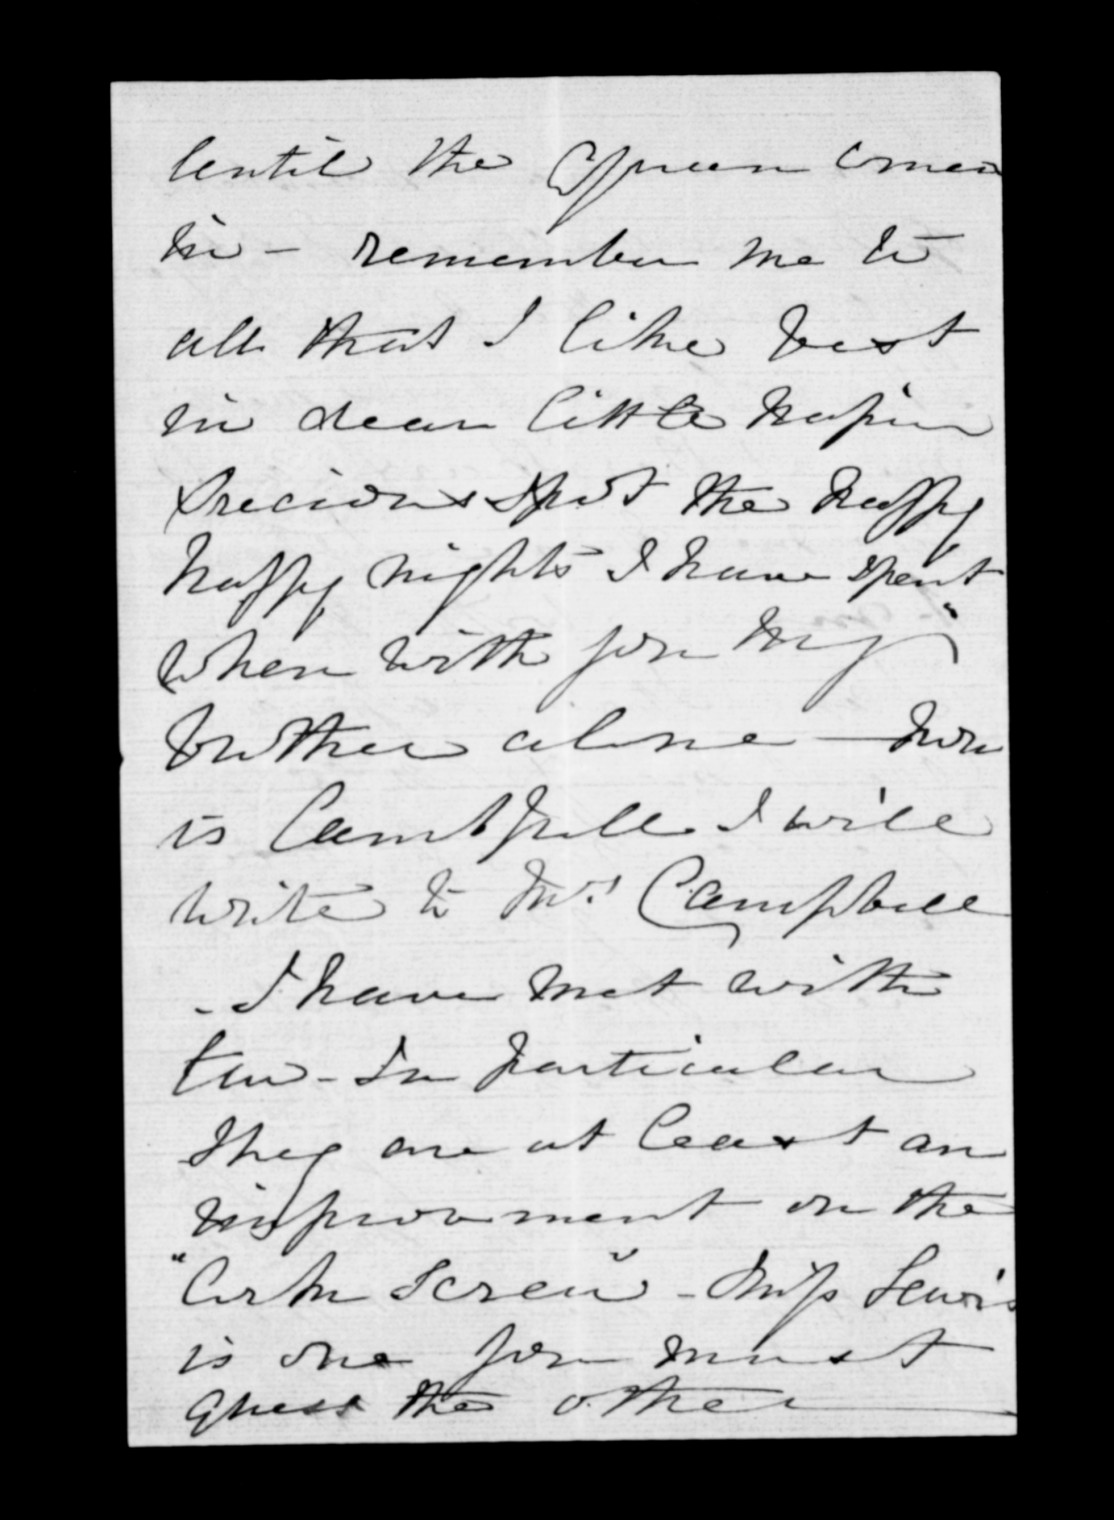 until the Queen comes
in - remember me to
all that I like best
in dear little Napier
precious spot the happy
happy nights I have spent
when with you my "
brother alone - how
is Campbell I will
write to Mrs. Campbell
- I have met with
two - In particular
They are at least an
improvement on the
"Cork Screw" - Miss Lewis
is one you must
guess the other